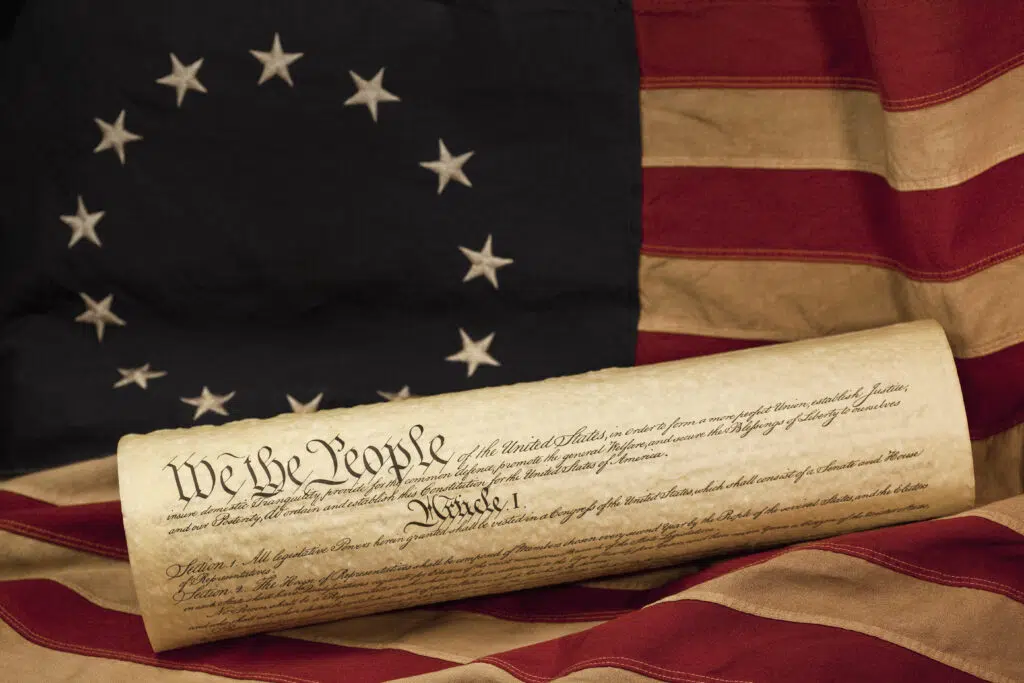 We the People of the United States, in order to form a more perfect Union, establish Justice,
insure domestic Tranquility, provide for the common defence, promote the general Welfare, and secure the Blessings of Liberty to ourselves
and our Posterity, do ordain and establish this Constitution for the United States of America.
Article I
Section 1. All legislative Powers herein granted shall be vested in a Congress of the United States, which shall consist of a Senate and House
of Representatives.
Section 2. The House of Representatives shall be composed of Members chosen every second Year by the People of the several States, and the Electors